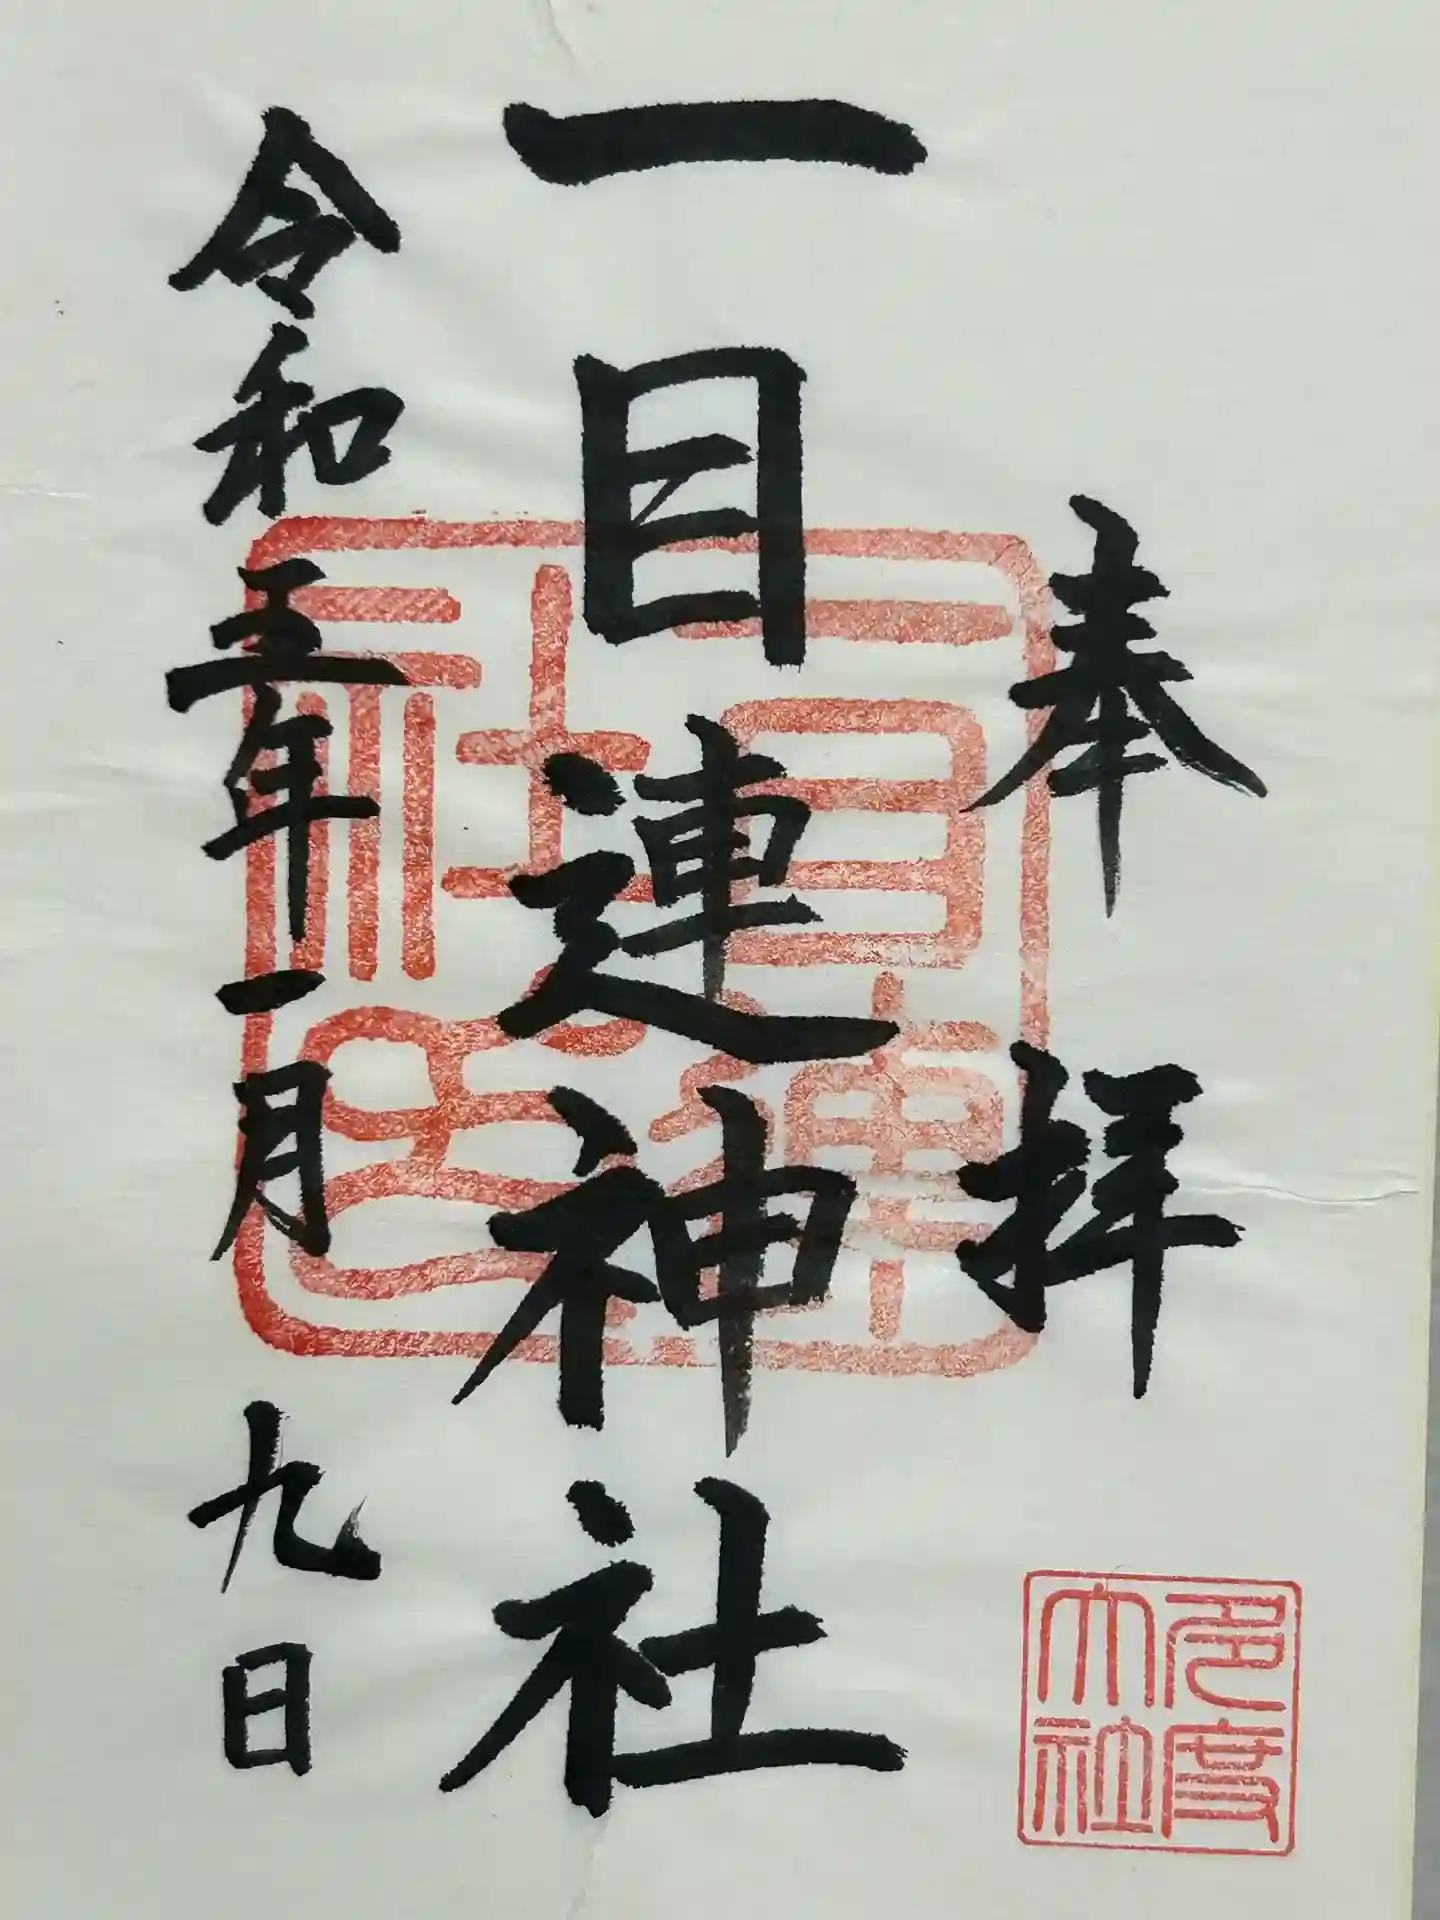 奉拝
一目連神社
令和五年一月九日
一目連社印
多度大社